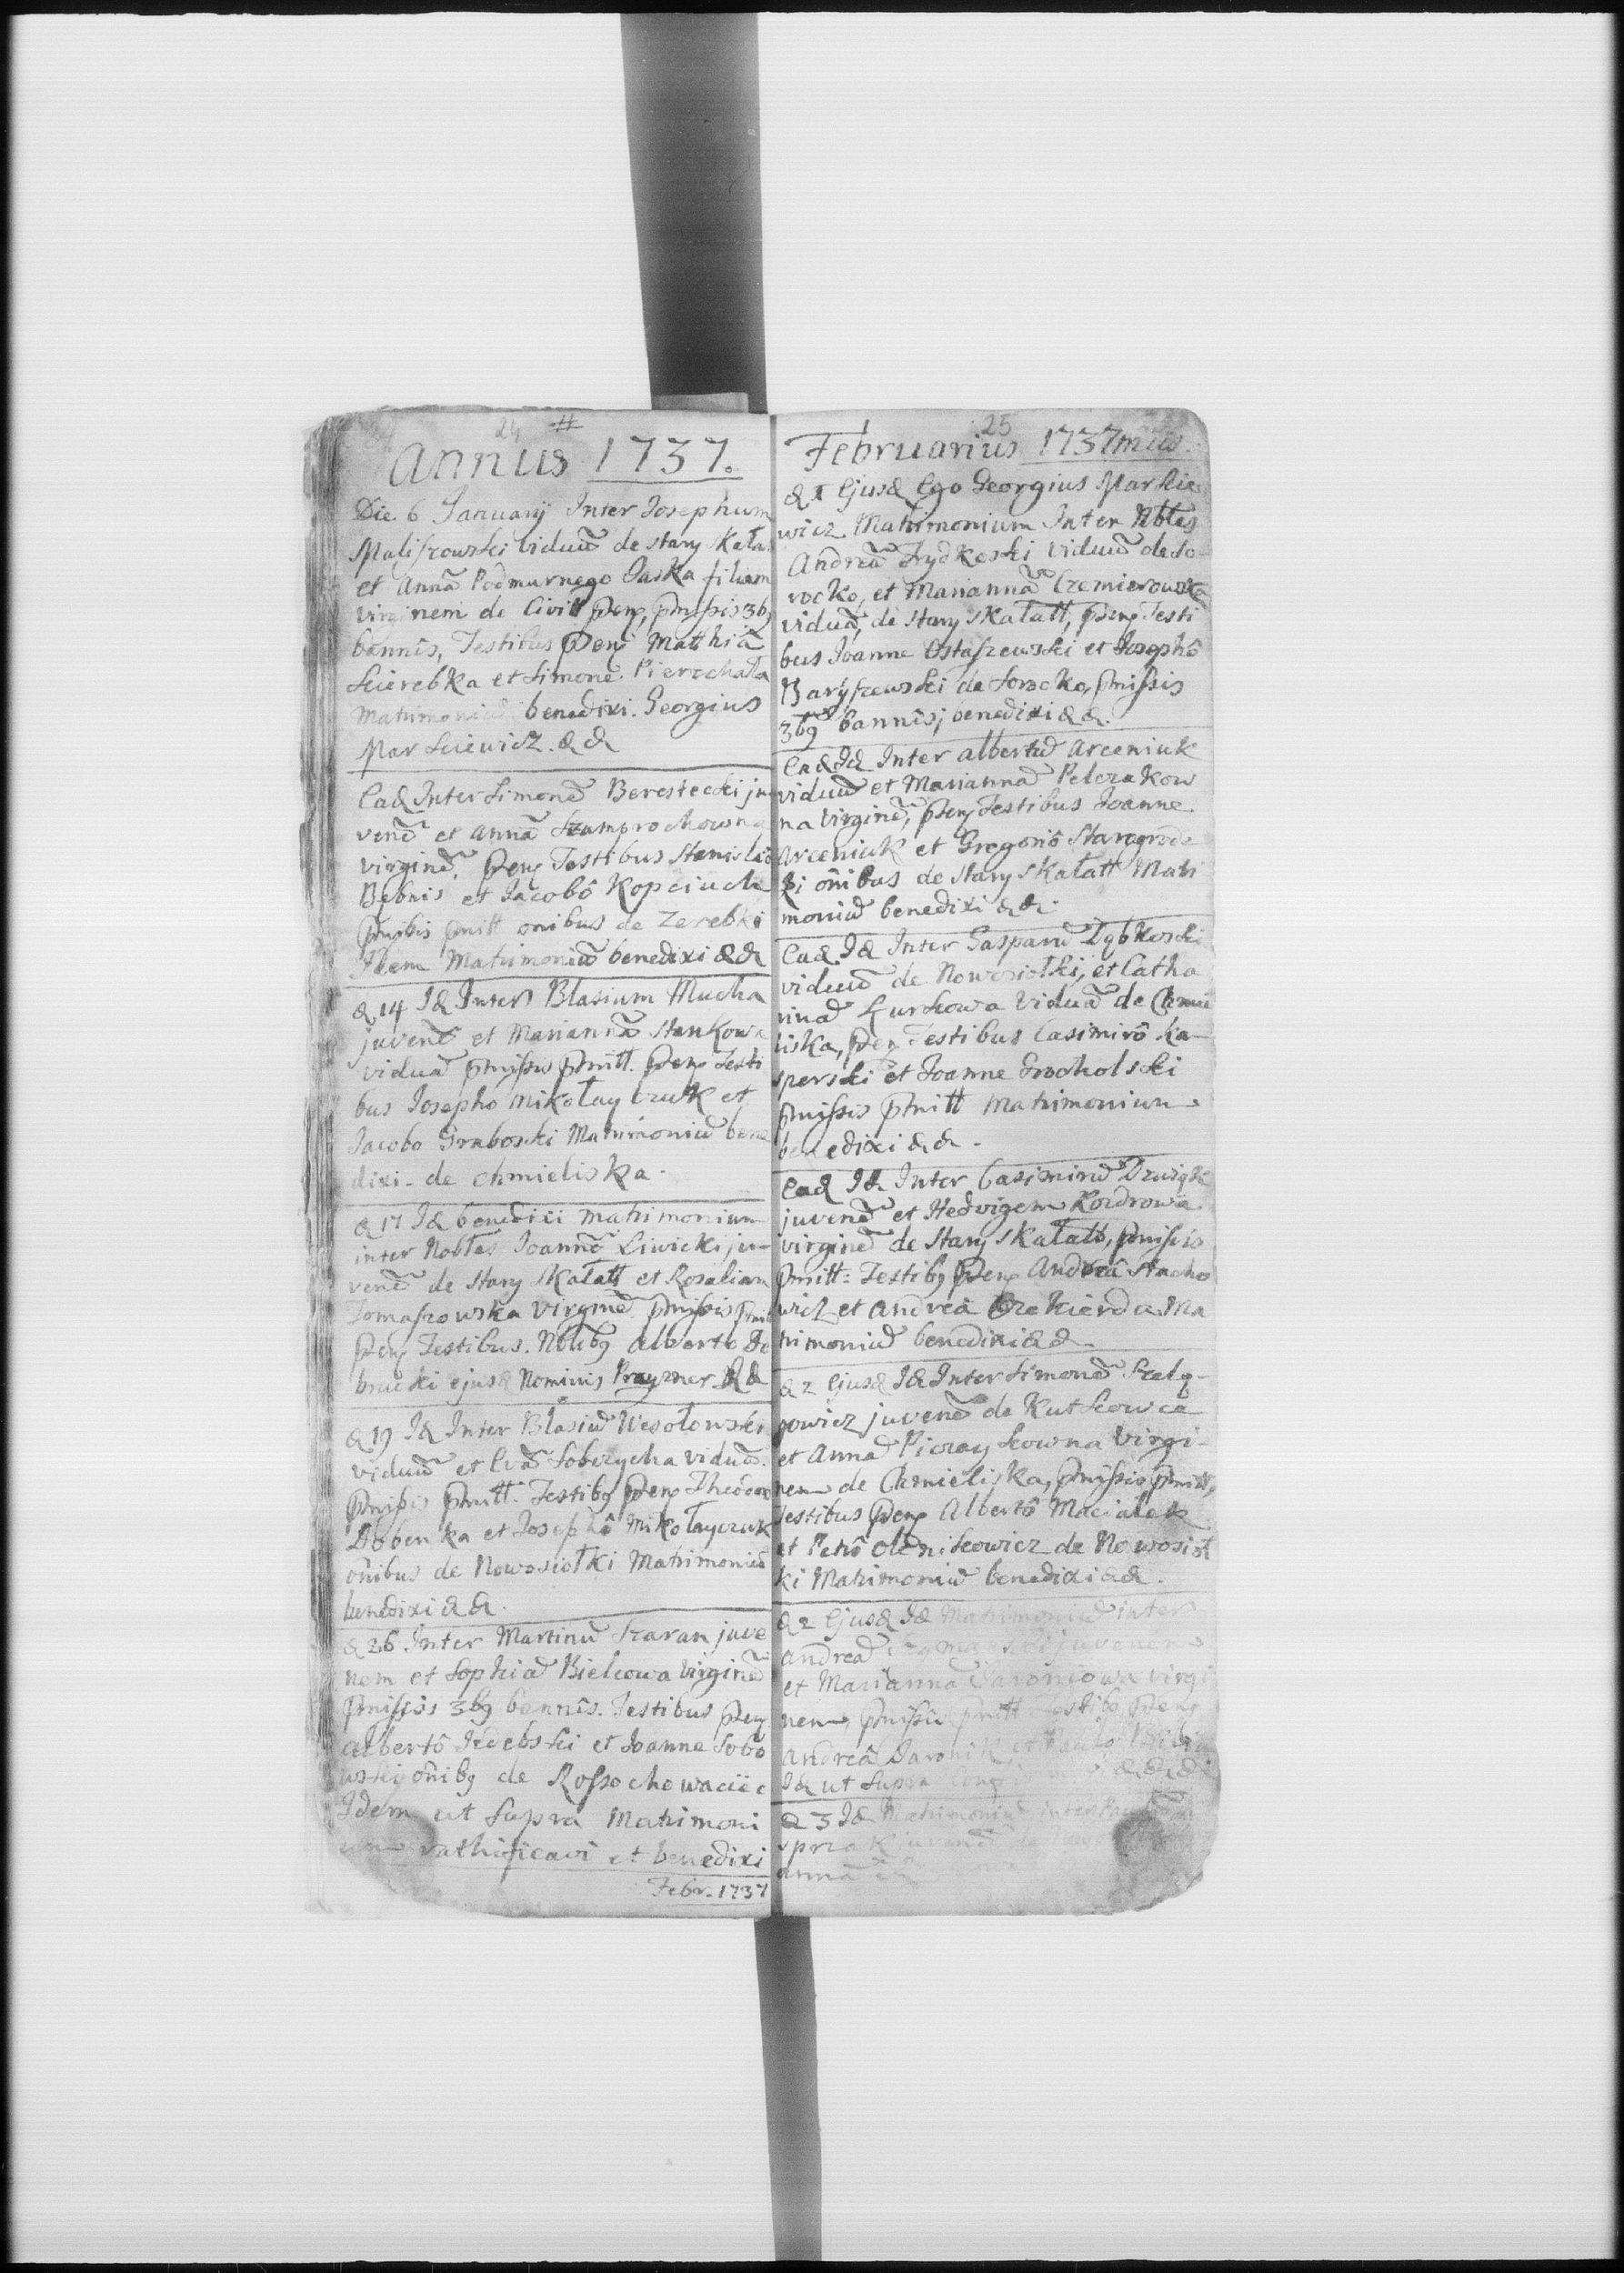 24 #
Annus 1737.
Die 6 Januarij Inter Josephum
Maliszowski viduũ de stary Skała
et Annã Podmurnego Jaska filiam
virginem de Civitt pñy, pmissis 3bg
bannis, Testibus pñy Matthiâ
Scierebka et Simone Pierochała
matrimoniũ benedixi. Georgius
Markiewicz. &&
Ead Inter Simonẽ Berestecki ju
venẽ et Annã Szamprochowna
virginẽ, pñy Testibus Stanislaô
Bębnis et Jacobô Kopciuch
pmissis pmitt oñibus de Zerebki
Idem Matrimoniũ benedixi &&
d. 14 Id Inter Blasium Mucha
juvenẽ et Mariannã Stankowa
viduã pmissis pmitt. pñy Testi
bus Josepho Mikołayczuk et
Jacobo Graboski Matrimoniũ bene
dixi. de Chmieliska.
d 17 Id benedixi matrimonium
inter Nobles Joannẽ Liwicki ju-
venẽ de Stary Skałatt et Rosaliam
Tomaszowska virginẽ pmissis pmitt
pñy Testibus. Noblibg Alberto De
brucki ejusd Nominis Prayzner &&
d 19 Id Inter Blasiũ Wesołowski
viduũ et Evã Sobczycha viduã.
pmissis pmitt. Testibg pñy Theodoro
Dobenka et Josephô Mikołayczuk
oñibus de Nowosiołki Matrimoniũ
benedixi &&.
d 26 Inter Martinũ Szaran juve
nem et Sophiã Bielcowa virginẽ
pmissis 3bg bannis. Testibus pñy
Albertô Jedebski et Joanne Sobo
wski, oñibg de Rossochowaciec
Idem ut Supra Matrimoni
um rathificavi et benedixi
Febr. 1737
25
Februarius 1737mus.
d 1 Ejusd Ego Georgius Markie
wicz Matrimonium Inter Nbles
Andreã Frydkoski viduũ de So-
rocko, et Mariannã Czemierowska
viduã, de Stary Skałatt, pñy Testi
bus Joanne Ostaszewski et Josephô
Baryszewski de Sorocko, pmissis
3bg bannis, benedixi &&.
Ead Id Inter Albertũ Arceniuk
viduũ et Mariannã Pelczakow
na virginẽ, pñy Testibus Joanne
Arceniuk et Gregoriô Starogrodz
ki oñibus de Stary Skałatt Matri
moniũ benedixi &&.
Ead Id Inter Gasparũ Dębkoski
viduũ de Nowosiołki, et Catha
rinã Kurkowa Viduã de Chmie
liska, pñy Testibus Casimirô Ka-
sperski et Joanne Grocholski
pmissis pmitt Matrimonium
benedixi &&.
Ead Id Inter Casimirũ
juvenẽ et Hedvigem Kondrowa
virginẽ de Stary Skałatt, pmissis
pmitt: Testibg pñy Andreâ Stacho
wicz et Andreâ Ma
trimoniũ benedixi &&.
d 2 Ejusd Id Inter Simonẽ Szelę-
gowicz juvenẽ de Kutkowce
et Annã Pieraykowna virgi-
nem de Chmieliska, pmissis pmitt,
Testibus pñy Albertô Macialek
et Petrô Olenikowicz de Nowosioł
ki Matrimoniũ benedixi &&.
d 2 Ejusd Id Matrimoniũ inter
Andreã juvenem
et Mariannã Jaroniowa virgi
nem, pmissis pmitt Testibg pñy
Andreâ Jaronik et
Id ut Supra &&&
d 3 Id Matrimoniũ inter
juvenẽ de
Annã